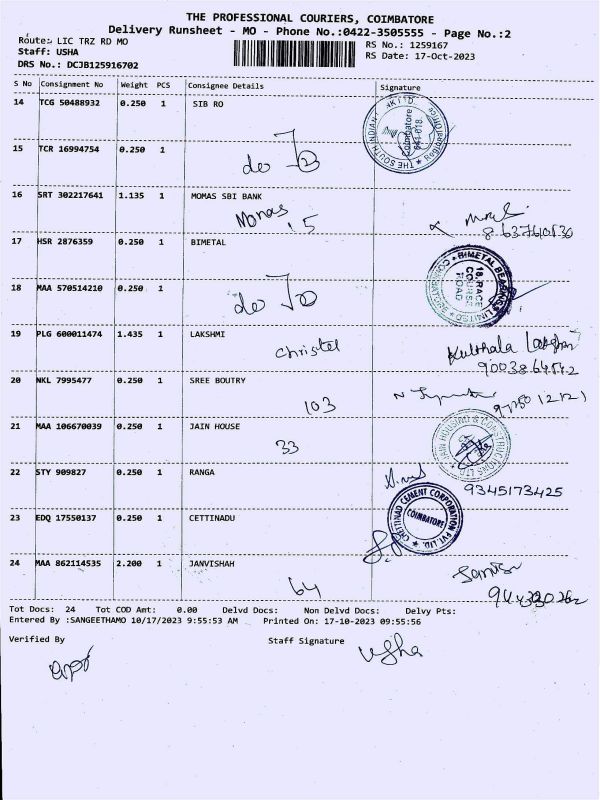 THE PROFESSIONAL COURIERS, COIMBATORE
Delivery Runsheet - MO - Phone No.:0422-3505555 - Page No.:2
Route: LIC TRZ RD MO
RS No.: 1259167
Staff: USHA
RS Date: 17-Oct-2023
DRS No.: DCJB125916702
S No Consignment No Weight PCS Consignee Details Signature
14 TCG 50488932 0.250 1 SIB RO
THE SOUTH INDIAN Coimbatore 641-018 Regional Office
15 TCR 16994754 0.250 1
do
16 SRT 302217641 1.135 1 MOMAS SBI BANK
Momas 15
8637610830
17 HSR 2876359 0.250 1 BIMETAL
BIMETAL BEARINGS LIMITED COIMBATORE 18, RACE COURSE ROAD
18 MAA 570514210 0.250 1
do
19 PLG 600011474 1.435 1 LAKSHMI
Christel
20 NKL 7995477 0.250 1 SREE BOUTRY
103
21 MAA 106670039 0.250 1 JAIN HOUSE
33
JAIN HOUSING & CONSTRUCTIONS LTD
22 STY 909827 0.250 1 RANGA
9345173425
23 EDQ 17550137 0.250 1 CETTINADU
CHETTINAD CEMENT CORPORATION PVT LTD. COIMBATORE
24 MAA 862114535 2.200 1 JANVISHAH
64
Tot Docs: 24 Tot COD Amt: 0.00 Delvd Docs: Non Delvd Docs: Delvy Pts:
Entered By :SANGEETHAMO 10/17/2023 9:55:53 AM Printed On: 17-10-2023 09:55:56
Verified By Staff Signature
Usha